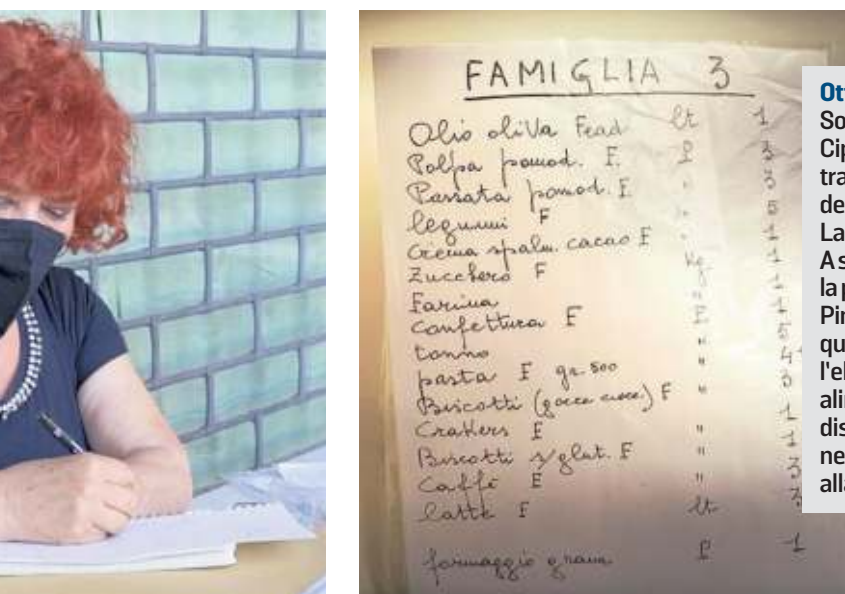 FAMIGLIA 3
Olio oliva Fead lt 1
Polpa pomod. F. P 3
Passata pomod. F " 3
legumi F " 5
Crema spalm. cacao F " 1
Zucchero F Kg 1
Farina " 1
Confettura F P 1
tonno " 5
pasta F gr. 500 " 4
Biscotti (gocce ciocc) F " 3
Crakers F " 1
Biscotti s/glut. F " 1
Caffè F " 3
latte F lt 3
formaggio grana P 1
Ot
So
Cip
tra
de
La
A s
la p
Pin
qu
l'el
ali
dis
ne
alla